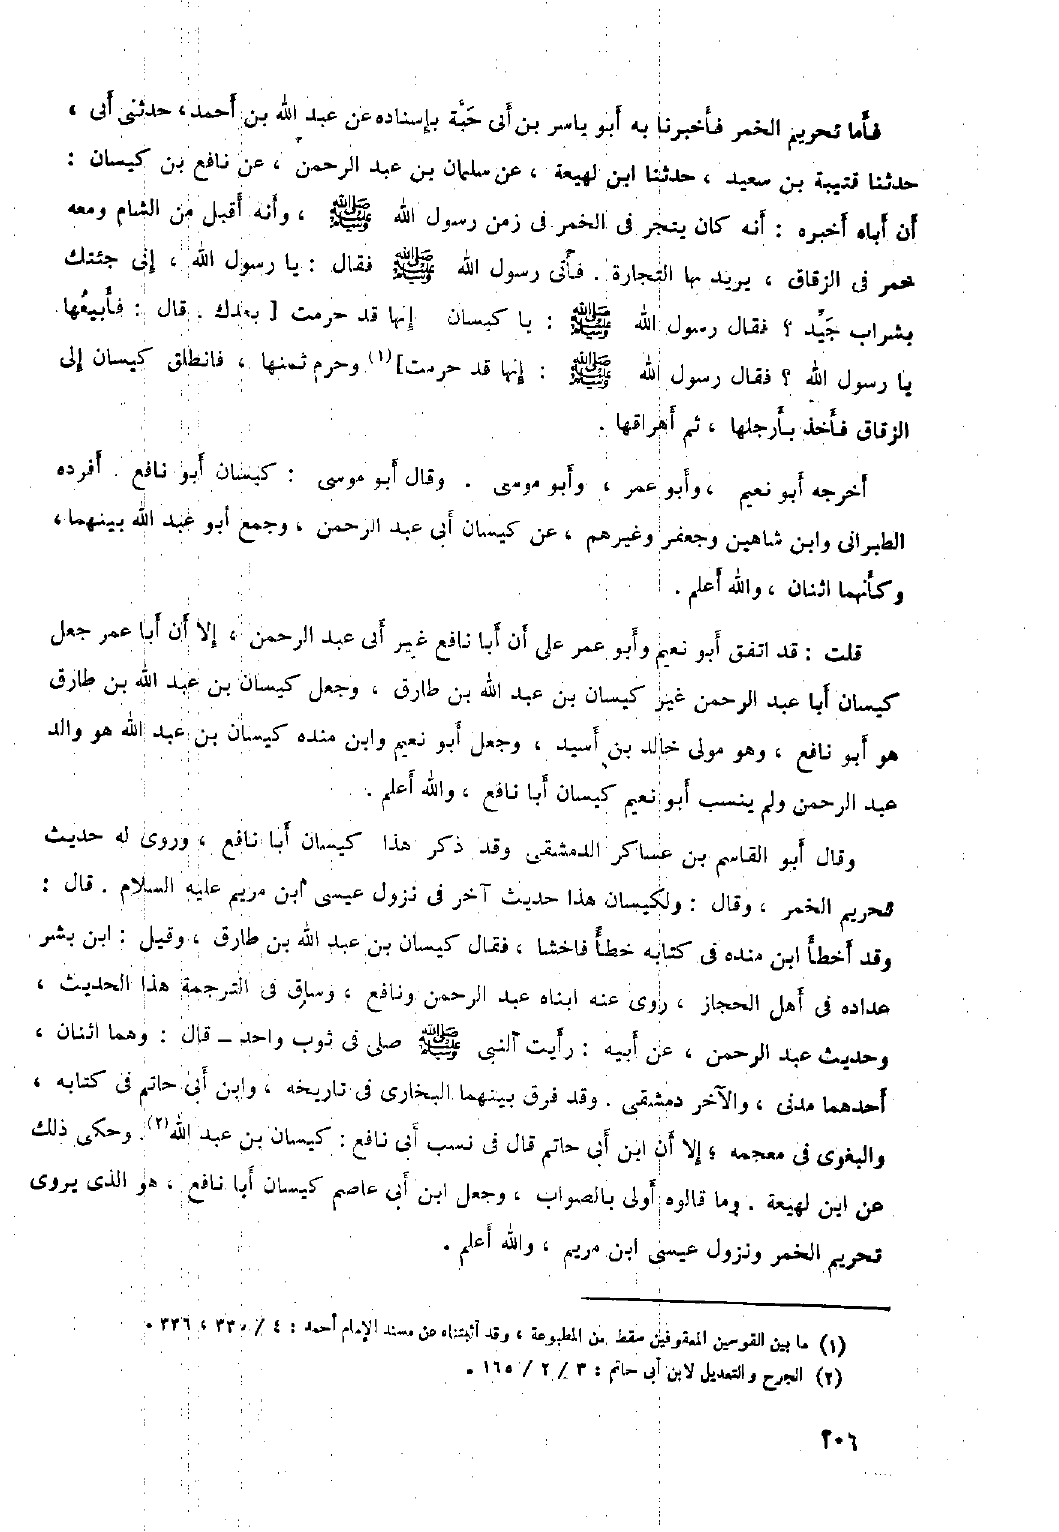 فأما تحريم الخمر فأخبرنا به أبو ياسر بن أبى حَبَّة بإسناده عن عبد الله بن أحمد ، حدثنى أبى ،
حدثنا قتيبة بن سعيد ، حدثنا ابن لهيعة ، عن سلمان بن عبد الرحمن ، عن نافع بن كيسان :
أن أباه أخبره : أنه كان يتجر فى الخمر فى زمن رسول الله ﷺ ، وأنه أقبل من الشام ومعه
خمر فى الزقاق ، يريد بها التجارة . فأتى رسول الله ﷺ فقال : يا رسول الله ، إنى جئتك
بشراب جَيِّد ؟ فقال رسول الله ﷺ : يا كيسان إنها قد حرمت [ بعدك . قال : فأبيعُها
يا رسول الله ؟ فقال رسول الله ﷺ : إنها قد حرمت](١) وحرم ثمنها ، فانطلق كيسان إلى
الزقاق فأخذ بأرجلها ، ثم أهراقها .
أخرجه أبو نعيم ، وأبو عمر ، وأبو موسى . وقال أبو موسى : كيسان أبو نافع . أفرده
الطبرانى وابن شاهين وجعفر وغيرهم ، عن كيسان أبى عبد الرحمن ، وجمع أبو عبد الله بينهما ،
وكأنهما اثنان ، والله أعلم .
قلت : قد اتفق أبو نعيم وأبو عمر على أن أبا نافع غير أبى عبد الرحمن ، إلا أن أبا عمر جعل
كيسان أبا عبد الرحمن غير كيسان بن عبد الله بن طارق ، وجعل كيسان بن عبد الله بن طارق
هو أبو نافع ، وهو مولى خالد بن أسيد ، وجعل أبو نعيم وابن منده كيسان بن عبد الله هو والد
عبد الرحمن ولم ينسب أبو نعيم كيسان أبا نافع ، والله أعلم .
وقال أبو القاسم بن عساكر الدمشقى وقد ذكر هذا كيسان أبا نافع ، وروى له حديث
تحريم الخمر ، وقال : ولكيسان هذا حديث آخر فى نزول عيسى ابن مريم عليه السلام . قال :
وقد أخطأ ابن منده فى كتابه خطأً فاخشا ، فقال كيسان بن عبد الله بن طارق ، وقيل : ابن بشر .
عداده فى أهل الحجاز ، روى عنه ابناه عبد الرحمن ونافع ، وساق فى الترجمة هذا الحديث ،
وحديث عبد الرحمن ، عن أبيه : رأيت النبى ﷺ صلى فى ثوب واحد ــ قال : وهما اثنان ،
أحدهما مدنى ، والآخر دمشقى . وقد فرق بينهما البخارى فى تاريخه ، وابن أبى حاتم فى كتابه ،
والبغوى فى معجمه ؛ إلا أن ابن أبى حاتم قال فى نسب أبى نافع : كيسان بن عبد الله(٢) . وحكى ذلك
عن ابن لهيعة . وما قالوه أولى بالصواب ، وجعل ابن أبي عاصم كيسان أبا نافع ، هو الذى يروى
تحريم الخمر ونزول عيسى ابن مريم ، والله أعلم .
(١) ما بين القوسين المعقوفين سقط من المطبوعة ، وقد أثبتناه عن مسند الإمام أحمد : ٤ / ٣٣٥ ، ٣٣٦ .
(٢) الجرح والتعديل لابن أبى حاتم : ٣ / ٢ / ١٦٥ .
٢٠٦